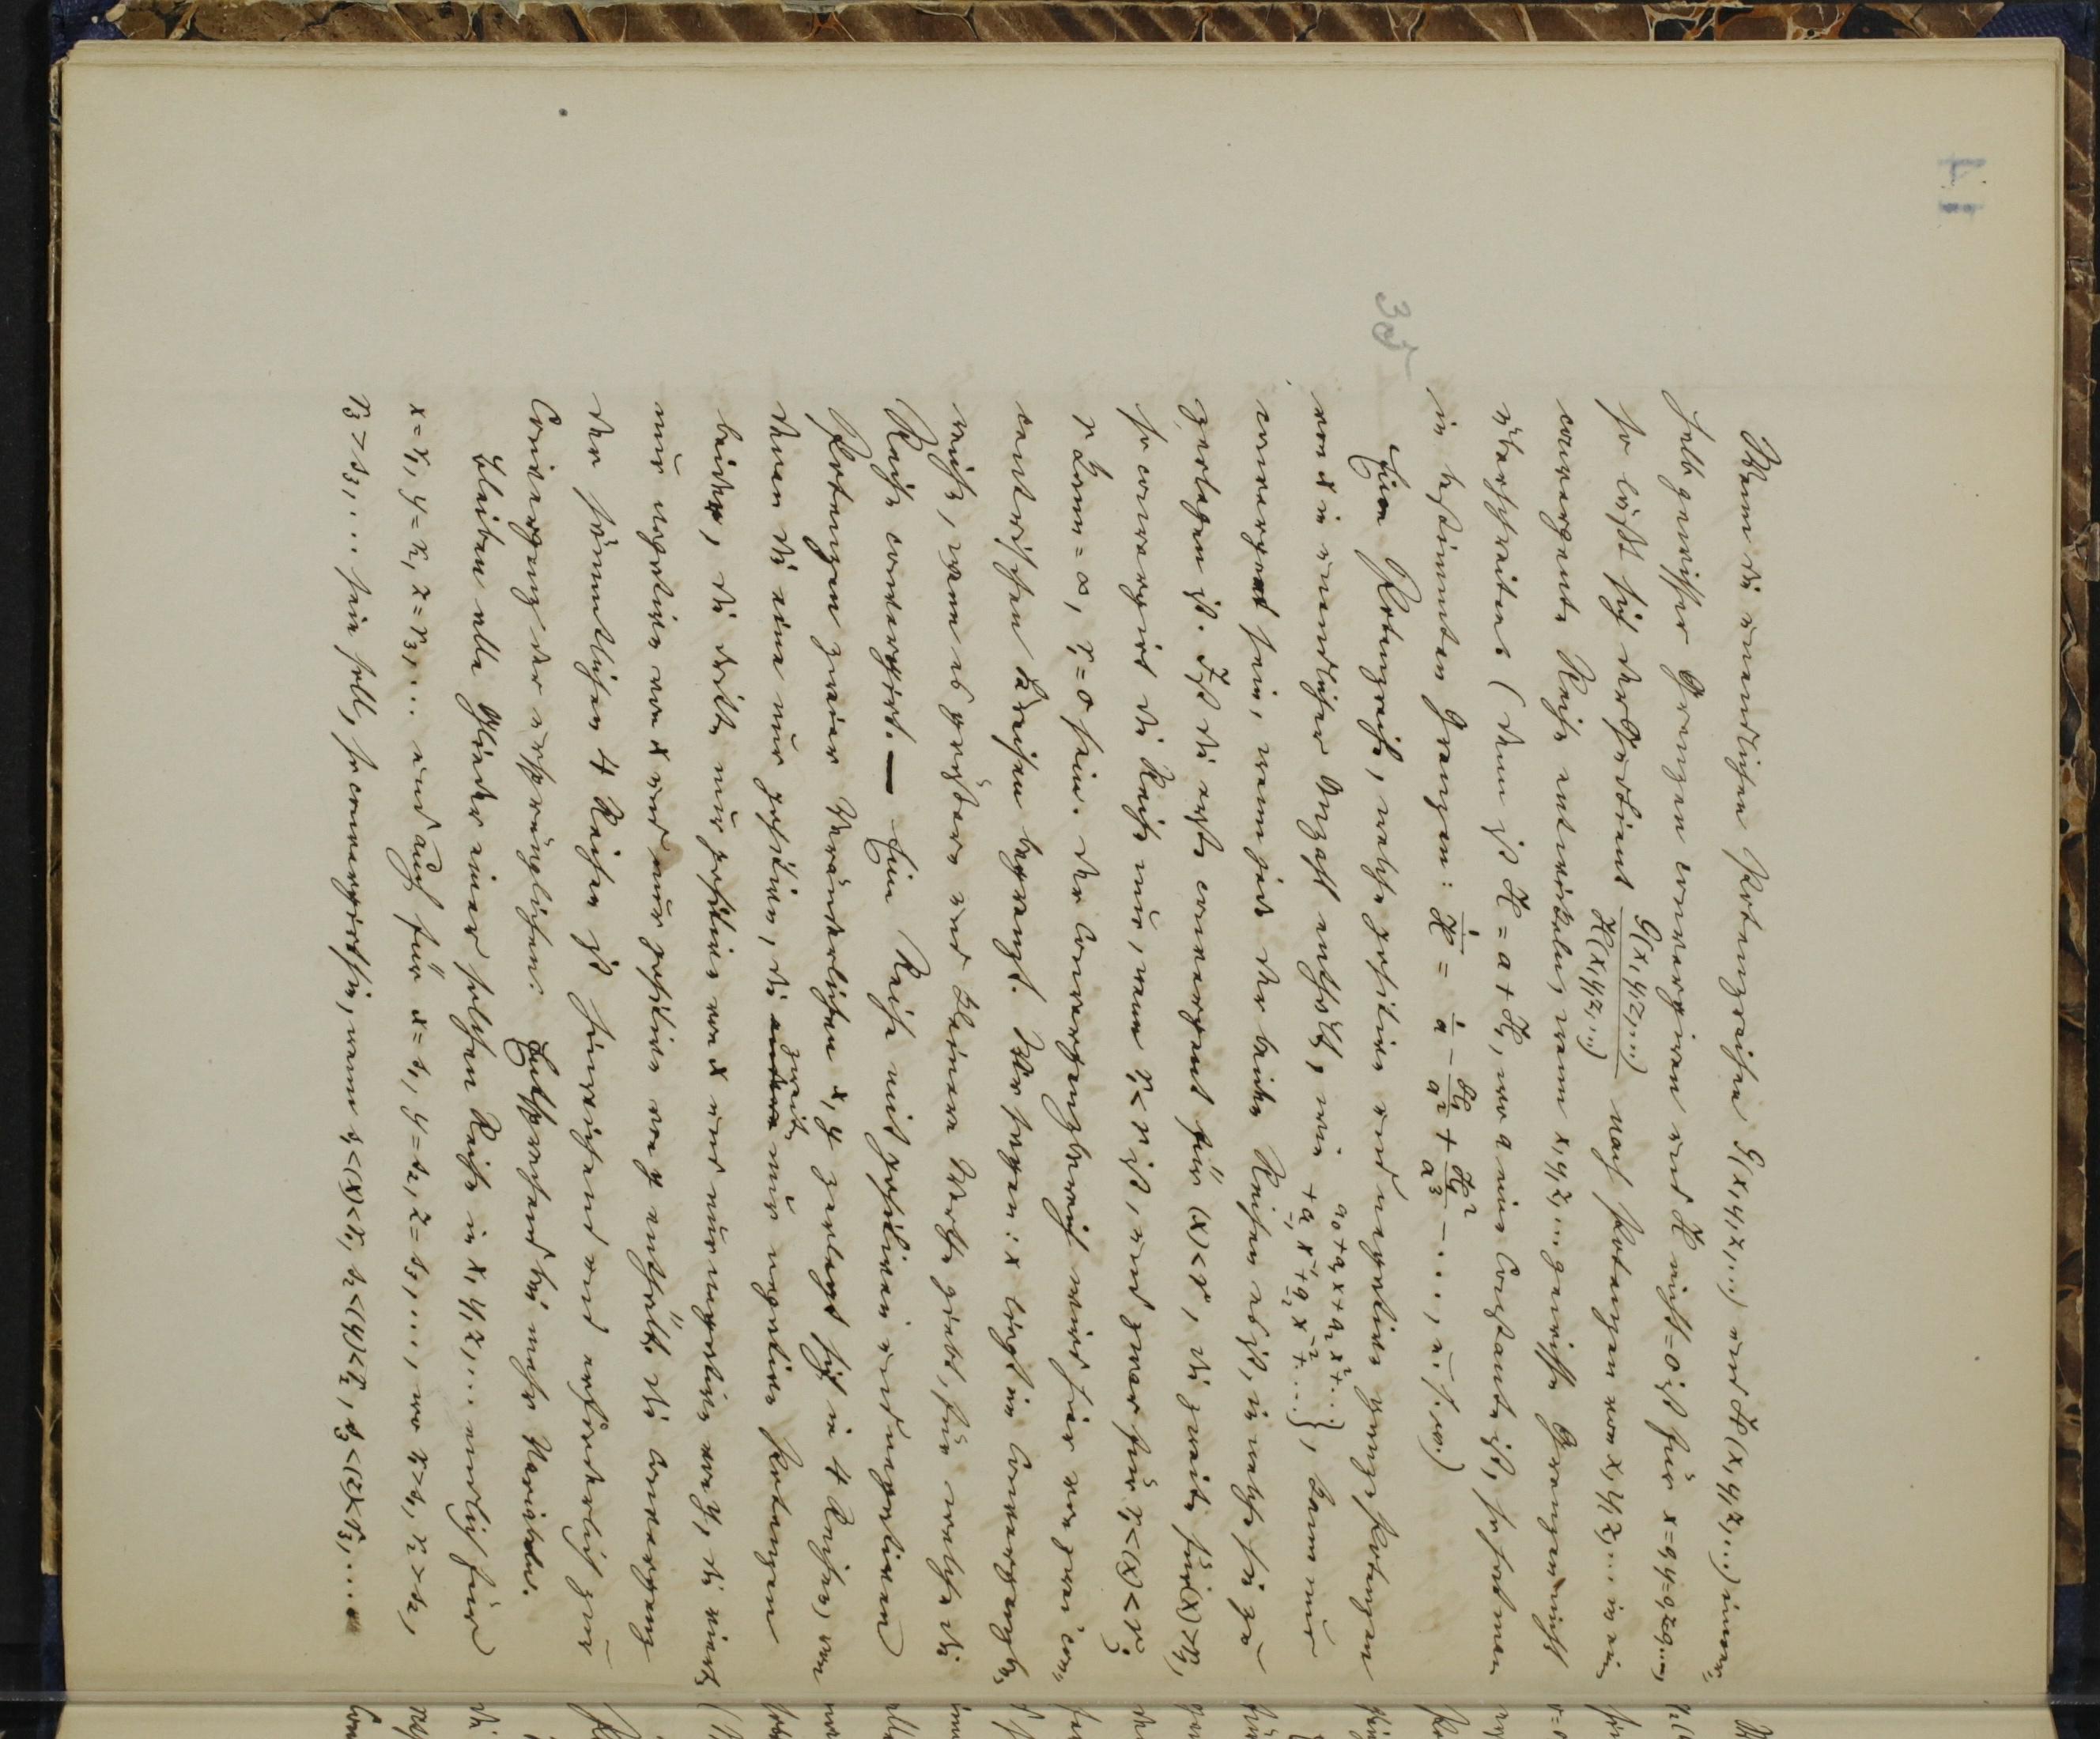 Wenn die unendlichen Potenzreihen G(x, y, z, ...) und H(x, y, z, ...) inner-
halb gewisser Grenzen convergiren und H nicht = 0 ist für x=0, y=0, z=0, ...,
so läßt sich der Quotient G(x, y, z, ...)/H(x, y, z, ...) nach Potenzen von x, y, z, ... in eine
convergente Reihe entwickeln, wenn x, y, z, ... gewisse Grenzen nicht
überschreiten (denn ist H = a + H₁, wo a eine Constante ist, so hat man
in bestimmten Grenzen: 1/H = 1/a − H₁/a² + H₁²/a³ − ..., u. s. w.)
Eine Potenzreihe, welche positive und negative ganze Potenzen
von x in unendlicher Anzahl enthält, wie a₀ + a₁x + a₂x² + ... + a₋₁x⁻¹ + a₋₂x⁻² + ... }, kann nur
convergent sein, wenn jede der beiden Reihen es ist, in welche sie zu
zerlegen ist. Ist die erste convergent für (x) < r, die zweite für (x) > r₁,
so convergirt die Reihe nur, wenn r₁ < r ist, und zwar für r₁ < (x) < r;
r kann = ∞, r₁ = 0 sein. Der Convergenzbereich wird hier von zwei con-
centrischen Kreisen begrenzt. Wir sagen: x liegt im Convergenzbe-
reiche, wenn es größere und kleinere Werthe giebt, für welche die
Reihe convergirt. — Eine Reihe mit positiven und negativen
Potenzen zweier Veränderlichen x, y zerlegt sich in 4 Reihen, von
denen die eine nur positive, die zweite nur negative Potenzen
beider, die dritte nur positive von x und nur negative von y, die vierte
nur negative von x und nur positive von y enthält. Die Convergenz
der sämmtlichen 4 Reihen ist hinreichend und erforderlich zur
Convergenz der ursprünglichen. Entsprechend bei mehr Variabeln.
Bleiben alle Glieder einer solchen Reihe in x, y, z, ... endlich für
x = r₁, y = r₂, z = r₃, ... und auch für x = s₁, y = s₂, z = s₃, ..., wo r₁ > s₁, r₂ > s₂,
r₃ > s₃, ... sein soll, so convergirt sie, wenn s₁ < (x) < r₁, s₂ < (y) < r₂, s₃ < (z) < r₃, ....